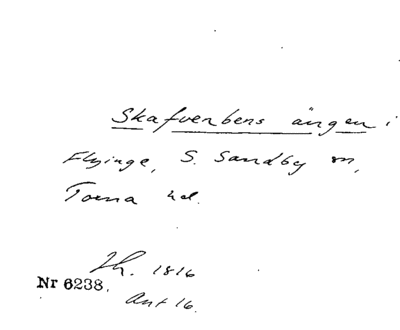 Skafverbens ängen i
Flyinge, S. Sandby sn,
Torna hd.
Th. 1816
Nr 6238.
Ant 16.